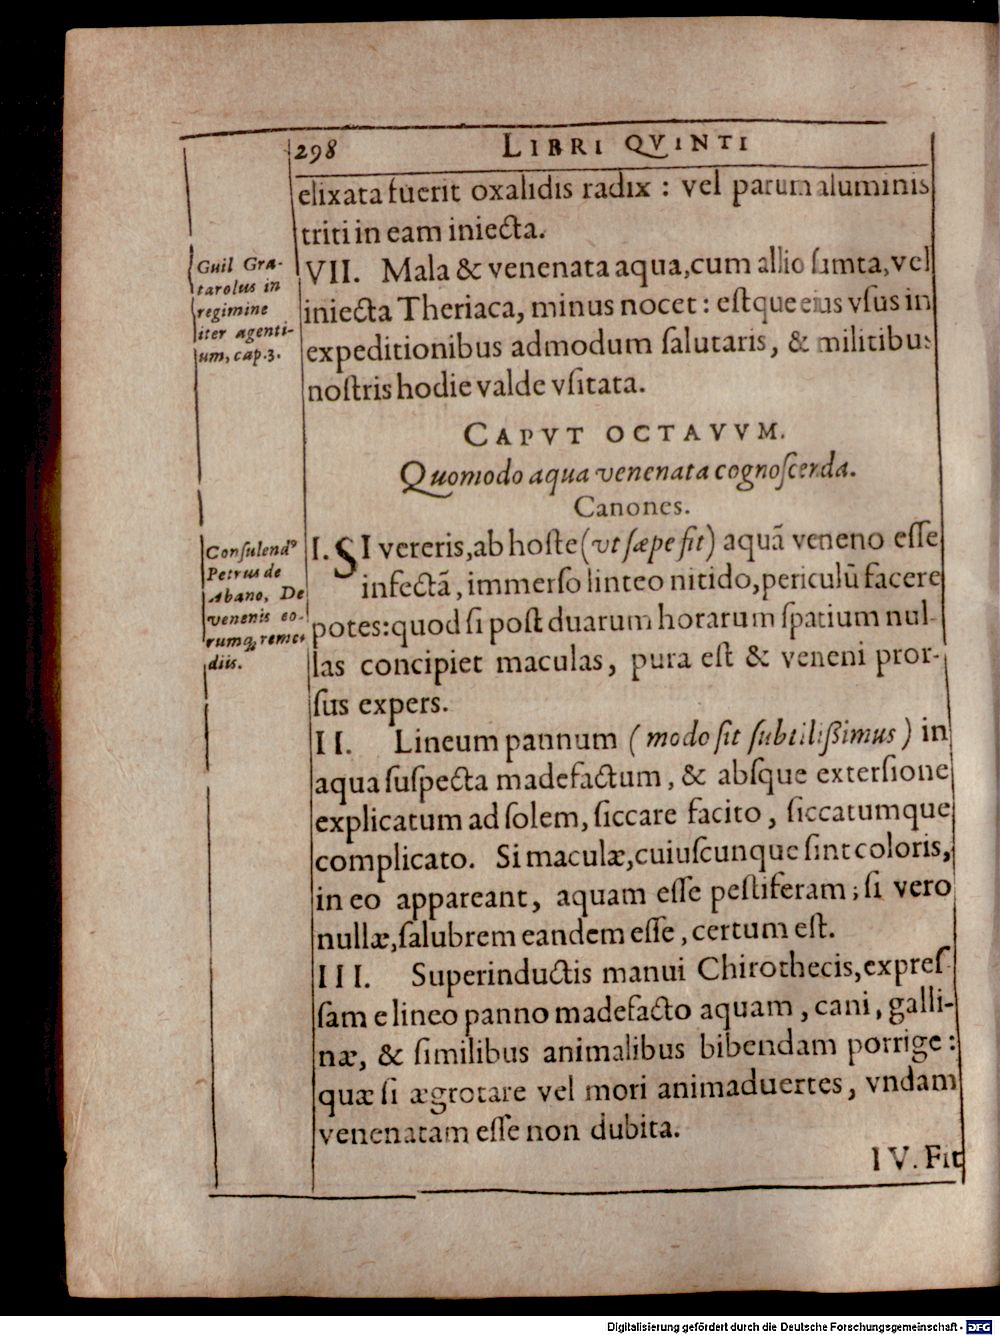 298 LIBRI QVINTI
elixata fuerit oxalidis radix : vel parum aluminis
triti in eam iniecta.
Guil Gra-
tarolus in
regimine
iter agenti-
um, cap.3.
VII. Mala & venenata aqua, cum allio sumta, vel
iniecta Theriaca, minus nocet : estque eius vsus in
expeditionibus admodum salutaris, & militibus
nostris hodie valde vsitata.
CAPVT OCTAVVM.
Quomodo aqua venenata cognoscenda.
Canones.
Consulendꝰ
Petrus de
Abano, De
venenis eo-
rumq́ reme-
diis.
I. SI vereris, ab hoste (vt sæpe fit) aquā veneno esse
infectā, immerso linteo nitido, periculū facere
potes: quod si post duarum horarum spatium nul-
las concipiet maculas, pura est & veneni pror-
sus expers.
II. Lineum pannum (modo sit subtilissimus) in
aqua suspecta madefactum, & absque extersione
explicatum ad solem, siccare facito, siccatumque
complicato. Si maculæ, cuiuscunque sint coloris,
in eo appareant, aquam esse pestiferam; si vero
nullæ, salubrem eandem esse, certum est.
III. Superinductis manui Chirothecis, expres-
sam e lineo panno madefacto aquam, cani, galli-
næ, & similibus animalibus bibendam porrige:
quæ si ægrotare vel mori animaduertes, vndam
venenatam esse non dubita.
IV. Fit
Digitalisierung gefördert durch die Deutsche Forschungsgemeinschaft - DFG